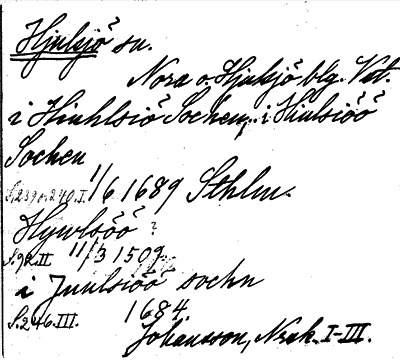 Hjulsjö sn.
Nora o. Hjulsjö blg. Vstl.
i Hiulsiö Sochen, i Hiulsiöö
Sochen
S. 239 o. 240. I. 1/6 1689 Sthlm.
Hywlsöö?
S. 92. II 11/3 1509
i Juulsiöö sochn
S. 246. III. 1684.
Johansson, Norak. I-III.